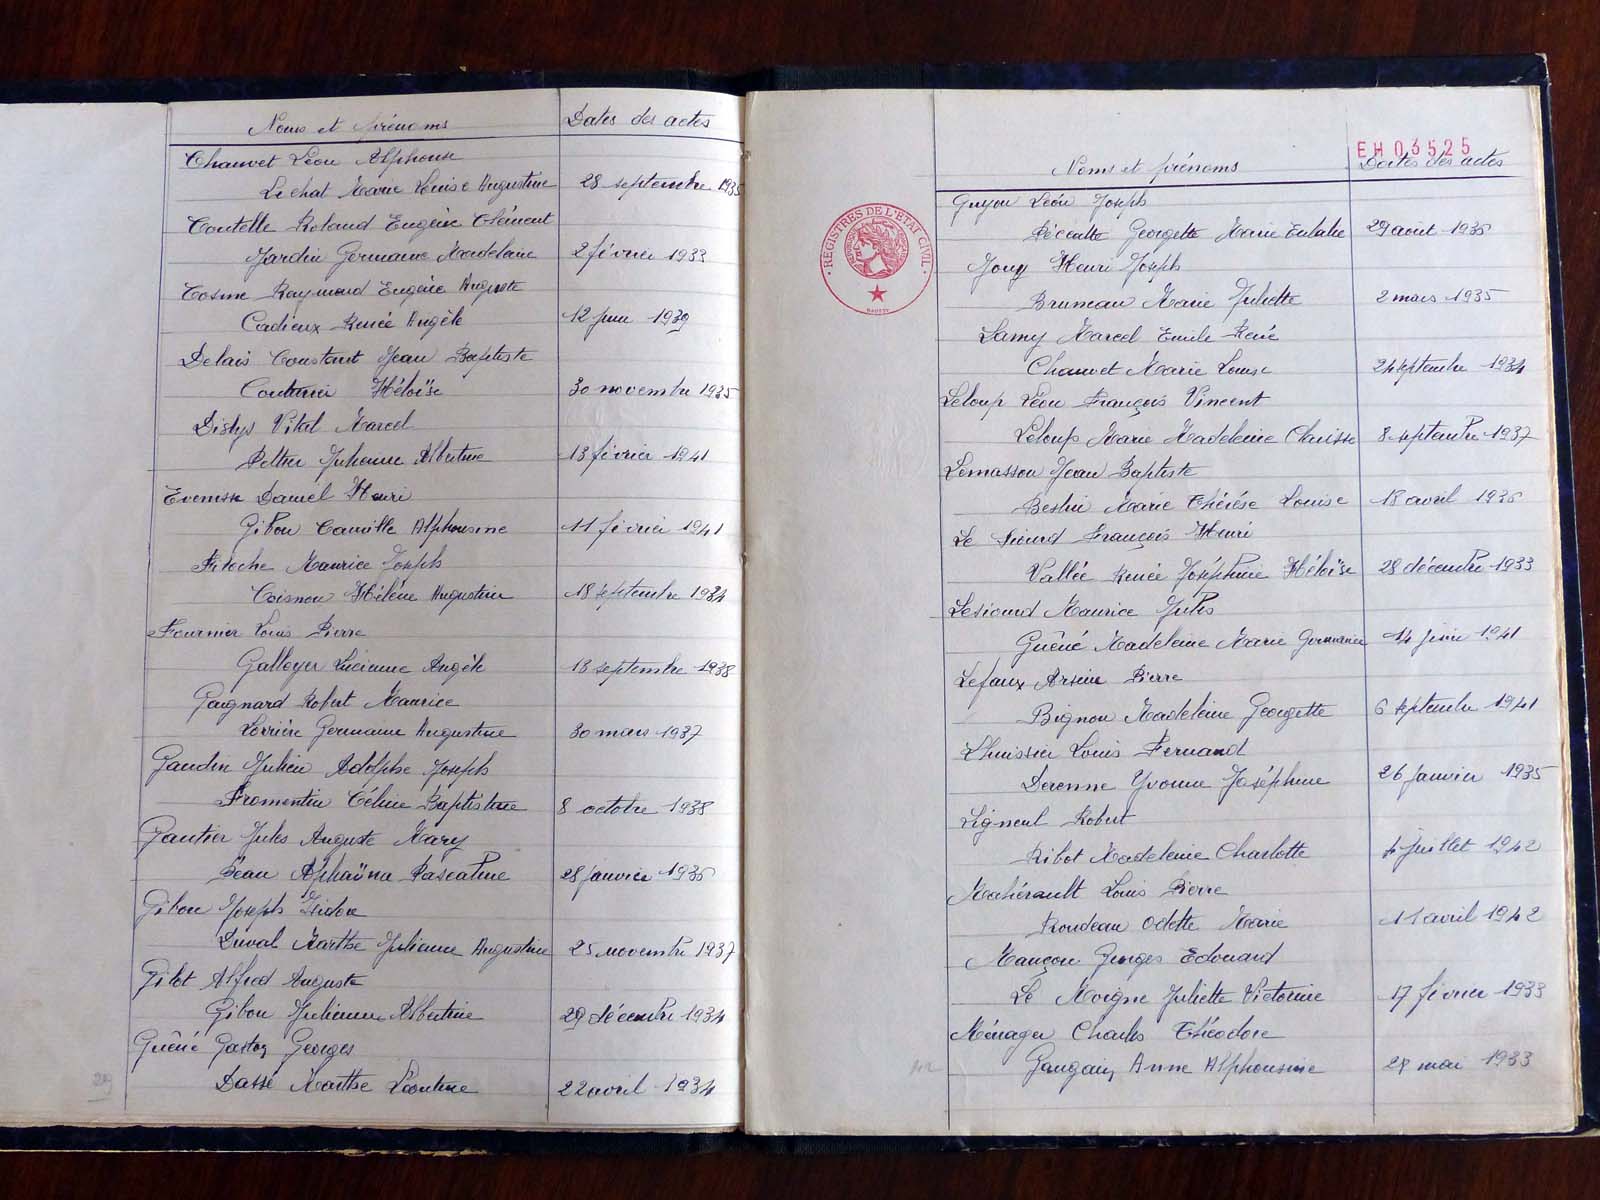 Noms et prénoms Dates des actes
Chauvet Léon Alphonse
Lechat Marie Louise Augustine 28 septembre 1935
Coutelle Roland Eugène Clément
Jardin Germaine Madeleine 2 février 1933
Cosme Raymond Eugène Auguste
Cadieux Renée Angèle 12 juin 1939
Delais Constant Jean Baptiste
Couturier Héloïse 30 novembre 1935
Vital Marcel
Julienne Albertine 13 février 1941
Daniel Henri
Gibon Camille Alphonsine 11 février 1941
Maurice Joseph
Coisnon Hélène Augustine 18 septembre 1934
Fournier Louis Pierre
Galloyer Lucienne Angèle 13 septembre 1938
Gaignard Robert Maurice
Lorrière Germaine Augustine 30 mars 1937
Gaudin Julien Adolphe Joseph
Fromentin Céline Baptistine 8 octobre 1938
Gautier Jules Auguste Mary
Beau Pascaline 28 janvier 1936
Gibon Joseph Isidore
Duval Marthe Julienne Augustine 25 novembre 1937
Alfred Auguste
Gibon Julienne Albertine 29 décembre 1934
Guêné Gaston Georges
Dassé Marthe Léontine 22 avril 1934
29
EH 03525
Noms et prénoms Dates des actes
REGISTRES DE L'ETAT CIVIL
Guyon Léon Joseph
Georgette Marie Eulalie 29 août 1936
Jouy Henri Joseph
Bruneau Marie Juliette 2 mars 1935
Lamy Marcel Emile René
Chauvet Marie Louise septembre 1934
Leloup Léon François Vincent
Leloup Marie Madeleine Clarisse 8 septembre 1937
Lemasson Jean Baptiste
Marie Thérèse Louise 18 avril 1936
Le François Henri
Vallée Renée Joséphine Héloïse 28 décembre 1933
Maurice Jules
Guêné Madeleine Marie Germaine 14 1941
Lefaux Arsène Pierre
Bignon Madeleine Georgette 6 septembre 1941
Lhuissier Louis Fernand
Derenne Yvonne Joséphine 26 janvier 1935
Ligneul Robert
Ribot Madeleine Charlotte juillet 1942
Mahérault Louis Pierre
Rondeau Odette Marie 11 avril 1942
Mançon Georges Edouard
Le Moigne Juliette Victorine 17 février 1933
Ménager Charles Théodore
Gaugain Anne Alphonsine mai 1933